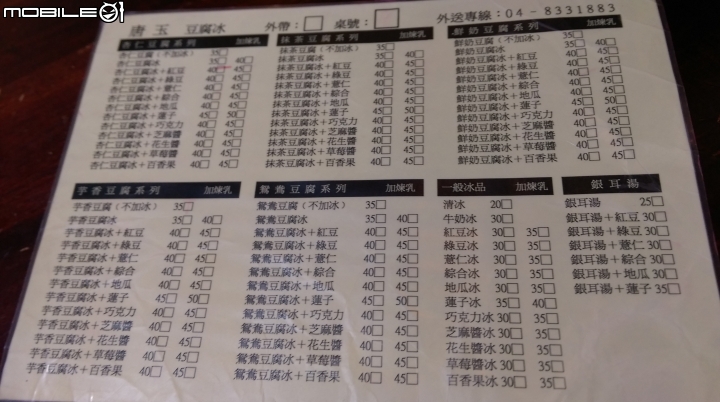 MOBILE01
唐玉 豆腐冰 外帶：□ 桌號：□ 外送專線：04-8331883
杏仁豆腐系列 加煉乳
杏仁豆腐（不加冰） 35□
杏仁豆腐冰 35□ 40□
杏仁豆腐冰＋紅豆 40□ 45□
杏仁豆腐冰＋綠豆 40□ 45□
杏仁豆腐冰＋薏仁 40□ 45□
杏仁豆腐冰＋綜合 40□ 45□
杏仁豆腐冰＋地瓜 40□ 45□
杏仁豆腐冰＋蓮子 45□ 50□
杏仁豆腐冰＋巧克力 40□ 45□
杏仁豆腐冰＋芝麻醬 40□ 45□
杏仁豆腐冰＋花生醬 40□ 45□
杏仁豆腐冰＋草莓醬 40□ 45□
杏仁豆腐冰＋百香果 40□ 45□
抹茶豆腐系列 加煉乳
抹茶豆腐（不加冰） 35□
抹茶豆腐冰 35□ 40□
抹茶豆腐冰＋紅豆 40□ 45□
抹茶豆腐冰＋綠豆 40□ 45□
抹茶豆腐冰＋薏仁 40□ 45□
抹茶豆腐冰＋綜合 40□ 45□
抹茶豆腐冰＋地瓜 40□ 45□
抹茶豆腐冰＋蓮子 45□ 50□
抹茶豆腐冰＋巧克力 40□ 45□
抹茶豆腐冰＋芝麻醬 40□ 45□
抹茶豆腐冰＋花生醬 40□ 45□
抹茶豆腐冰＋草莓醬 40□ 45□
抹茶豆腐冰＋百香果 40□ 45□
鮮奶豆腐系列 加煉乳
鮮奶豆腐（不加冰） 35□
鮮奶豆腐冰 35□ 40□
鮮奶豆腐冰＋紅豆 40□ 45□
鮮奶豆腐冰＋綠豆 40□ 45□
鮮奶豆腐冰＋薏仁 40□ 45□
鮮奶豆腐冰＋綜合 40□ 45□
鮮奶豆腐冰＋地瓜 40□ 45□
鮮奶豆腐冰＋蓮子 45□ 50□
鮮奶豆腐冰＋巧克力 40□ 45□
鮮奶豆腐冰＋芝麻醬 40□ 45□
鮮奶豆腐冰＋花生醬 40□ 45□
鮮奶豆腐冰＋草莓醬 40□ 45□
鮮奶豆腐冰＋百香果 40□ 45□
芋香豆腐系列 加煉乳
芋香豆腐（不加冰） 35□
芋香豆腐冰 35□ 40□
芋香豆腐冰＋紅豆 40□ 45□
芋香豆腐冰＋綠豆 40□ 45□
芋香豆腐冰＋薏仁 40□ 45□
芋香豆腐冰＋綜合 40□ 45□
芋香豆腐冰＋地瓜 40□ 45□
芋香豆腐冰＋蓮子 45□ 50□
芋香豆腐冰＋巧克力 40□ 45□
芋香豆腐冰＋芝麻醬 40□ 45□
芋香豆腐冰＋花生醬 40□ 45□
芋香豆腐冰＋草莓醬 40□ 45□
芋香豆腐冰＋百香果 40□ 45□
鴛鴦豆腐系列 加煉乳
鴛鴦豆腐（不加冰） 35□
鴛鴦豆腐冰 35□ 40□
鴛鴦豆腐冰＋紅豆 40□ 45□
鴛鴦豆腐冰＋綠豆 40□ 45□
鴛鴦豆腐冰＋薏仁 40□ 45□
鴛鴦豆腐冰＋綜合 40□ 45□
鴛鴦豆腐冰＋地瓜 40□ 45□
鴛鴦豆腐冰＋蓮子 45□ 50□
鴛鴦豆腐冰＋巧克力 40□ 45□
鴛鴦豆腐冰＋芝麻醬 40□ 45□
鴛鴦豆腐冰＋花生醬 40□ 45□
鴛鴦豆腐冰＋草莓醬 40□ 45□
鴛鴦豆腐冰＋百香果 40□ 45□
一般冰品 加煉乳
清冰 20□
牛奶冰 30□
紅豆冰 30□ 35□
綠豆冰 30□ 35□
薏仁冰 30□ 35□
綜合冰 30□ 35□
地瓜冰 30□ 35□
蓮子冰 35□ 40□
巧克力冰 30□ 35□
芝麻醬冰 30□ 35□
花生醬冰 30□ 35□
草莓醬冰 30□ 35□
百香果冰 30□ 35□
銀耳湯
銀耳湯 25□
銀耳湯＋紅豆 30□
銀耳湯＋綠豆 30□
銀耳湯＋薏仁 30□
銀耳湯＋綜合 30□
銀耳湯＋地瓜 30□
銀耳湯＋蓮子 35□